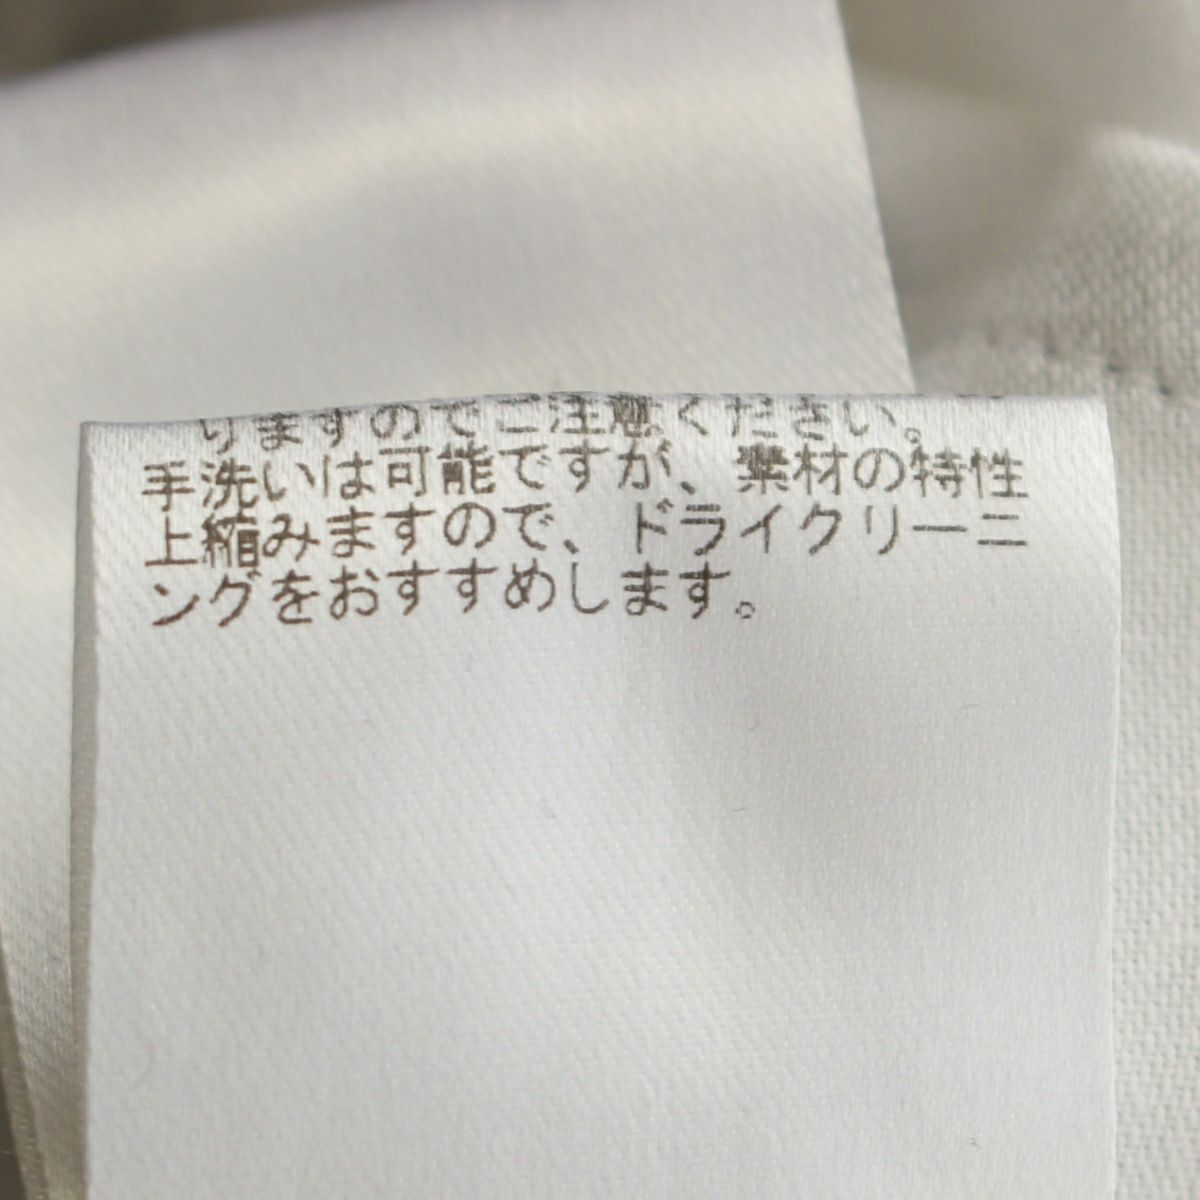 りますのでご注意ください。
手洗いは可能ですが、素材の特性
上縮みますので、ドライクリーニ
ングをおすすめします。